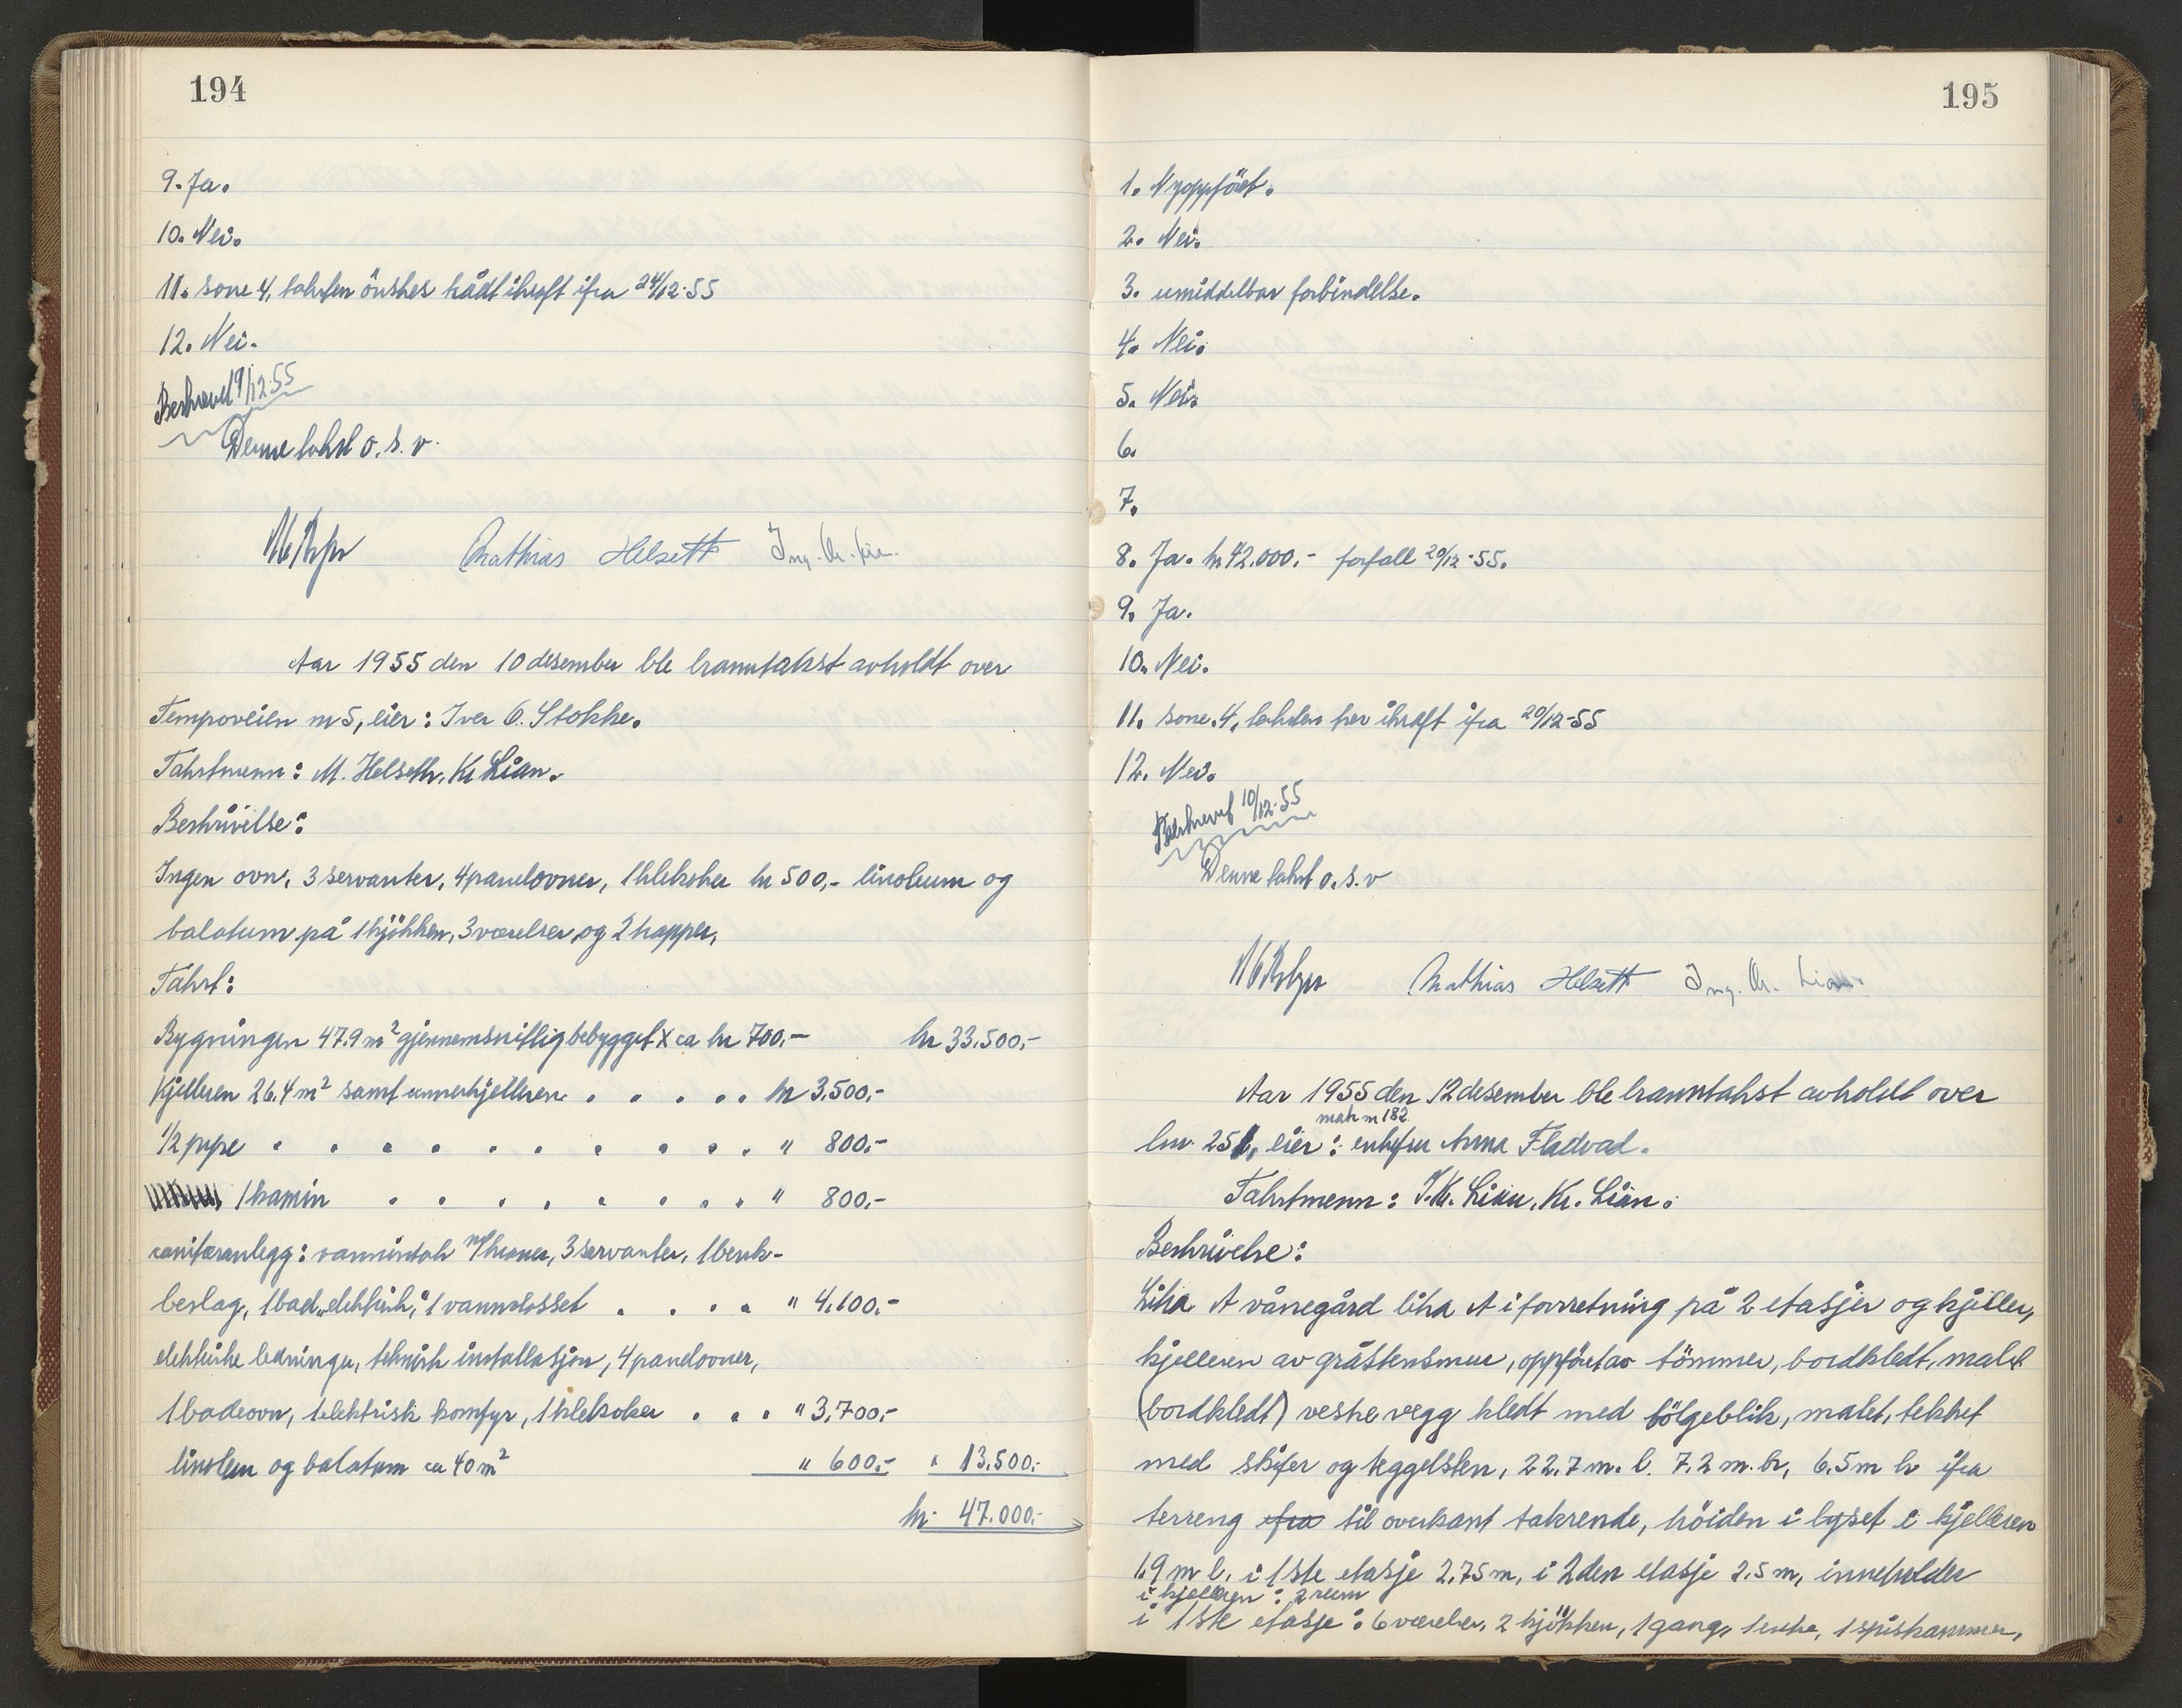 194
9. Ja.
10. Nei.
11. sone 4, taksten önskes trådt ikraft ifra 24/12-55
12. Nei.
Beskrevet 9/12-55
Denne takst o. s. v.
Mathias Helseth Ing. Kr. Lian.
Aar 1955 den 10 desember ble branntakst avholdt over
Tempoveien nr 5, eier: Iver O. Stokke.
Takstmenn: M. Helseth, Kr Lian.
Beskrivelse:
Ingen ovn, 3 servanter, 4 panelovner, 1 klekoker kr 500,- linoleum og
balatum på 1 kjökken, 3 værelser og 2 trapper,
Takst:
Bygningen 47.9 m² gjennemsnitlig bebygget x ca kr 700,- kr 33.500,-
Kjelleren 26.4 m² samt unnerkjelleren . . . . . kr 3.500,-
1/2 pipe . . . . . . . . . . " 800,-
1 kamin . . . . . . . . " 800,-
sanitæranlegg: vanninntak m/kraner, 3 servanter, 1 benk-
beslag, 1 bad „elektrisk", 1 vannklosset . . . . " 4.100,-
elektriske ledninger, teknisk installasjon, 4 panelovner,
1 badeovn, 1 elektrisk komfyr, 1 klekoker . . . " 3.700,-
linoleum og balatum ca 40 m² " 600,- " 13.500,-
kr. 47.000,-
195
1. Nyoppfört.
2. Nei.
3. umiddelbar forbindelse.
4. Nei.
5. Nei.
6.
7.
8. Ja. kr 42.000,- forfall 20/12-55.
9. Ja.
10. Nei.
11. sone 4, taksten trer ikraft ifra 20/12-55
12. Nei.
Beskrevet 10/12-55
Denne takst o. s. v
Mathias Helseth Ing. Kr. Lian.
Aar 1955 den 12 desember ble branntakst avholdt over
matr nr 182
lnr. 251, eier: enkefru Anna Fladvad.
Takstmenn: J. Kr. Lian, Kr. Lian.
Beskrivelse:
Litra A vånegård litra A i forretning på 2 etasjer og kjeller,
kjelleren av gråstensmur, oppfört av tömmer, bordkledt, malet
(bordkledt) vestre vegg kledt med bölgeblik, malet, tekket
med skifer og teggelsten, 22.7 m. l. 7.2 m. br, 6.5 m h ifra
terreng ifra til overkant takrende, höiden i lyset i kjelleren
1.9 m l. i 1ste etasje 2.75 m, i 2den etasje 2.5 m, inneholder
i kjelleren: 2 rum
i 1ste etasje: 6 værelser, 2 kjökken, 1 gang, 1 entre, 1 spiskammer,